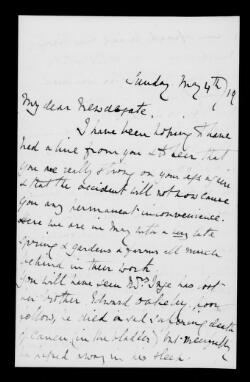 Sunday May 4th / 19
My dear Newdegate.
I have been hoping to have
had a line from you & to hear that
you are really strong on your legs again
& that the accident will not now cause
you any permanent inconvenience.
Here we are in May with a very late
Spring & gardens & farms all much
behind in their work.
You will have seen Mrs Inge has lost
her brother Edward Oakeley, poor
fellow, he died a sad suffering death
of cancer in the bladder, but mercifully
he passed away in his sleep.